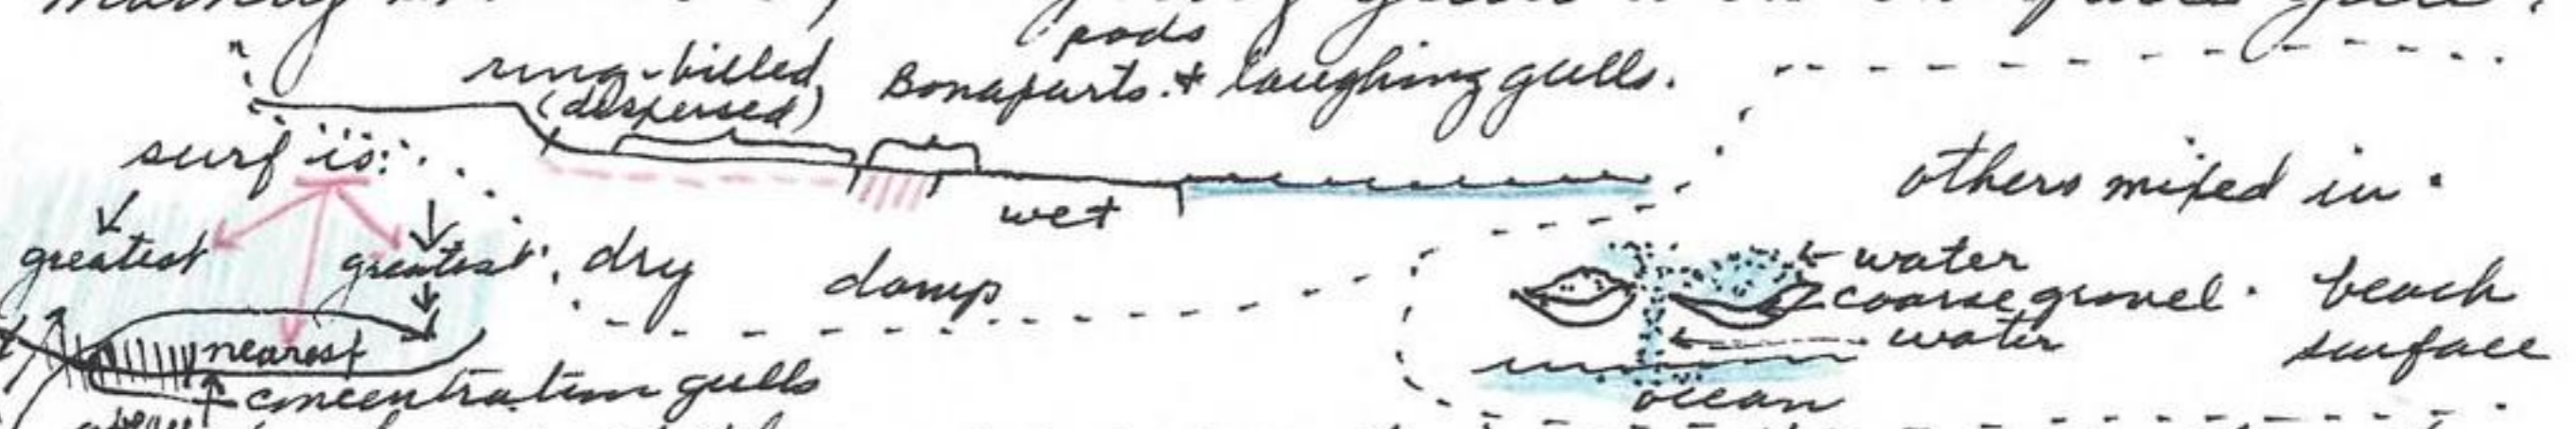 pods
ring-billed, Bonaparts. + laughing gulls.
(dispersed)
surf is:
others mixed in.
wet
greatest greatest dry damp
water
coarse gravel. beach
water surface
nearest
concentration gulls
ocean